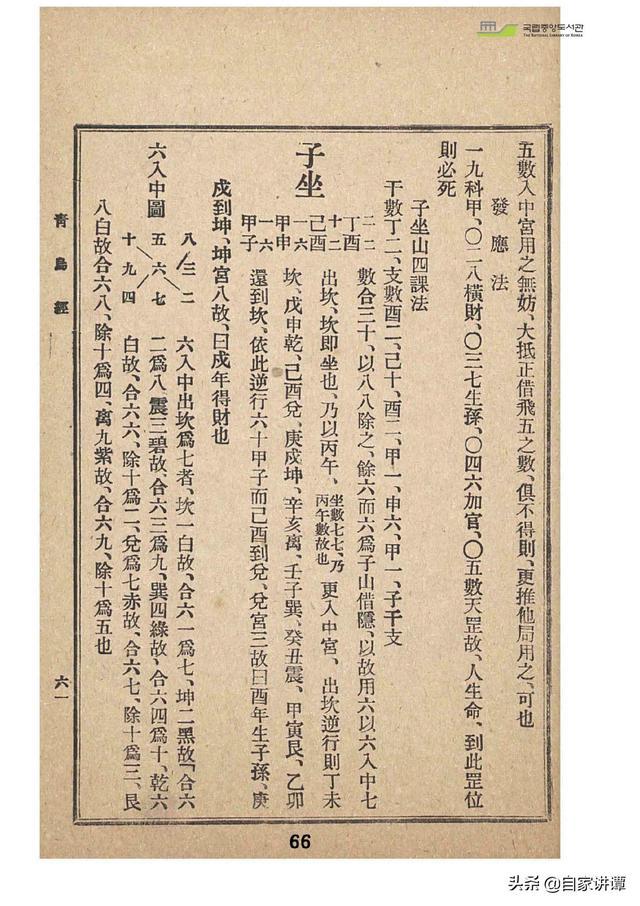 국립중앙도서관
THE NATIONAL LIBRARY OF KOREA
五數入中宮用之無妨、大抵正借飛五之數、俱不得則、更推他局用之、可也
發應法
一九科甲、〇二八橫財、〇三七生孫、〇四六加官、〇五數天罡故、人生命、到此罡位
則必死
子坐山四課法
干數丁二、支數酉二、己十、酉二、甲一、申六、甲一、子干支
子坐
二二 丁酉
十二 己酉
一六 甲申
一六 甲子
數合三十、以八八除之、餘六而六爲子山借隱、以故用六以六入中七
出坎、坎卽坐也、乃以丙午、坐數七七、乃丙午數故也 更入中宮、出坎逆行則丁未
坎、戊申乾、己酉兌、庚戌坤、辛亥離、壬子巽、癸丑震、甲寅艮、乙卯
還到坎、依此逆行六十甲子而己酉到兌、兌宮三故曰酉年生子孫、庚
戌到坤、坤宮八故、曰戌年得財也
六入中圖
八 三 二
五 六 七
十 九 四
六入中出坎爲七者、坎一白故、合六一爲七、坤二黑故「合六
二爲八、震三碧故、合六三爲九、巽四綠故、合六四爲十、乾六
白故、合六六、除十爲二、兌爲七赤故、合六七、除十爲三、艮
八白故合六八、除十爲四、離九紫故、合六九、除十爲五也
靑烏經
六一
66
头条 @自家讲谭